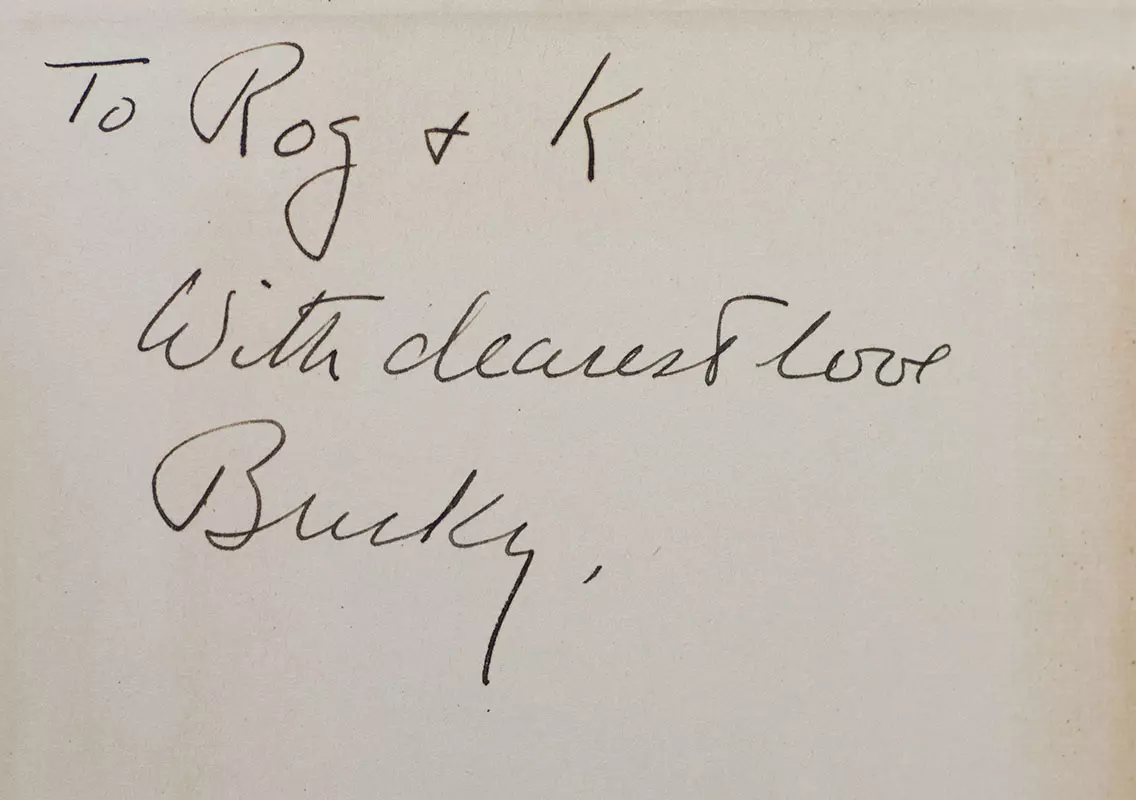 To Rog & K
With dearest love
Bucky,